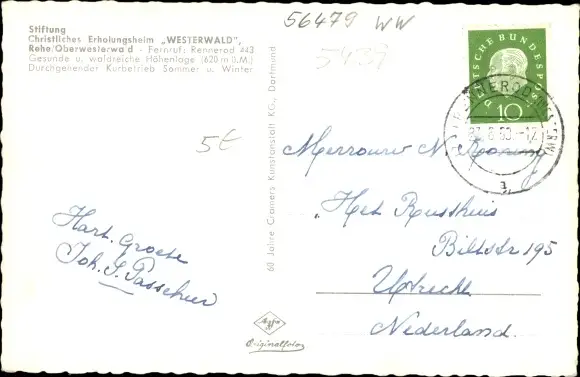 56479 WW
5439
Stiftung
Christliches Erholungsheim „WESTERWALD",
Rehe/Oberwesterwald - Fernruf: Rennerod 443
Gesunde u. waldreiche Höhenlage (620 m ü.M.)
Durchgehender Kurbetrieb Sommer u. Winter
5€
Hart. groete
Joh. S. Passchier
60 Jahre Cramers Kunstanstalt KG., Dortmund
Agfa
Originalfoto
DEUTSCHE BUNDESPOST
10
RENNEROD (WESTERW)
8.60-12
a
Mevrouw N. Koning
"Het Rusthuis
Biltstr 195
Utrecht
Nederland.